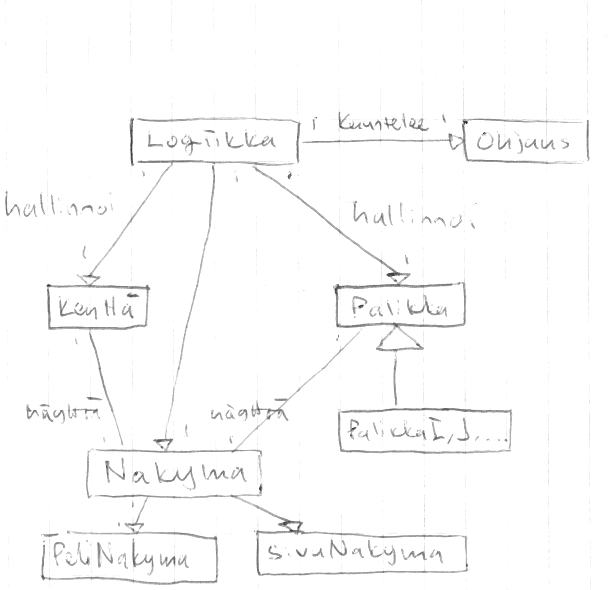 Logiikka
1 Kuuntelee 1
Ohjaus
hallinnoi
hallinnoi
Kenttä
Palikka
näyttää
näyttää
PalikkaI, J, ....
Nakyma
PeliNakyma
sivuNakyma